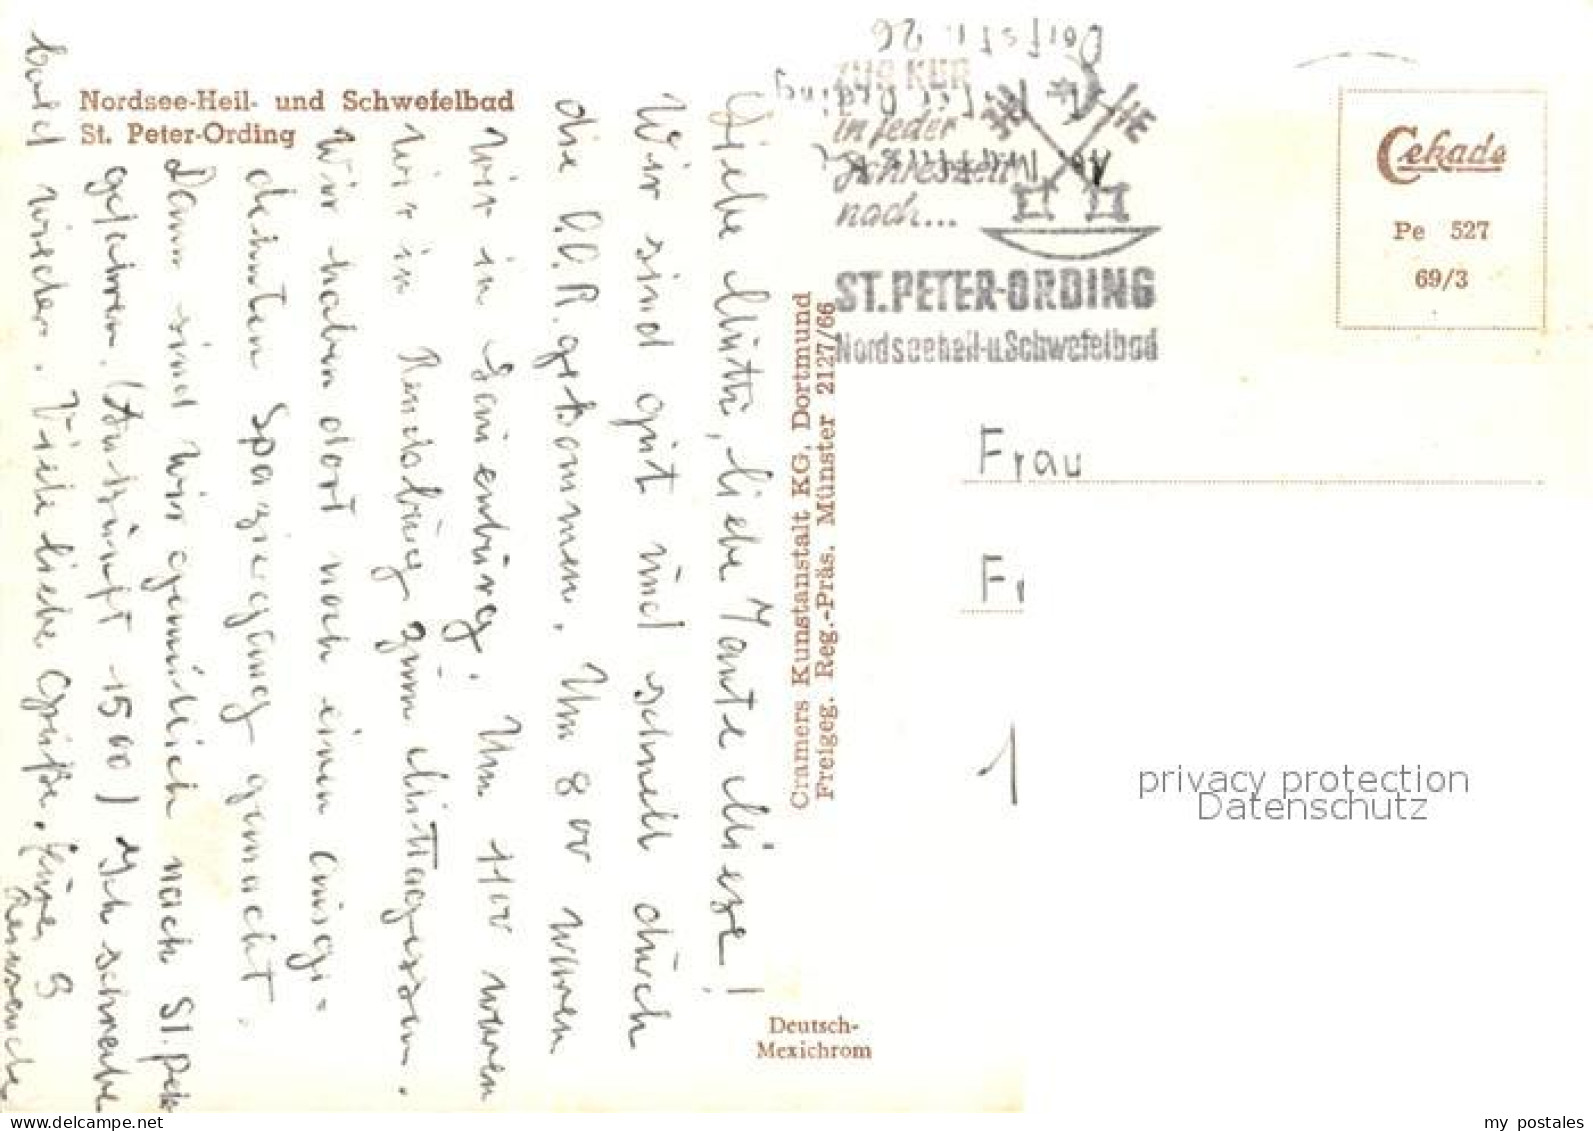 Nordsee-Heil- und Schwefelbad
St. Peter-Ording
Liebe Mutti, liebe Tante Miese!
Wir sind gut und schnell durch
die D.D.R. gekommen. Um 8 00 waren
wir in Lauenburg. Um 11 00 waren
wir in Rendsburg zum Mittagessen.
Wir haben dort noch einen ausge-
dehnten Spaziergang gemacht.
Dann sind wir gemütlich nach St. Peter
gefahren. (Ankunft 15 00) Ich schreibe
bald wieder. Viele liebe Grüße,
Cramers Kunstanstalt KG, Dortmund
Freigeg. Reg.-Präs. Münster 2127/66
Deutsch-
Mexichrom
Dorfstr. 26
ZUR KUR
in jeder
Jahreszeit
nach...
ST. PETER-ORDING
Nordseeheil-u.Schwefelbad
Cekade
Pe 527
69/3
Frau
Fr
1
privacy protection
Datenschutz
www.delcampe.net
my_postales